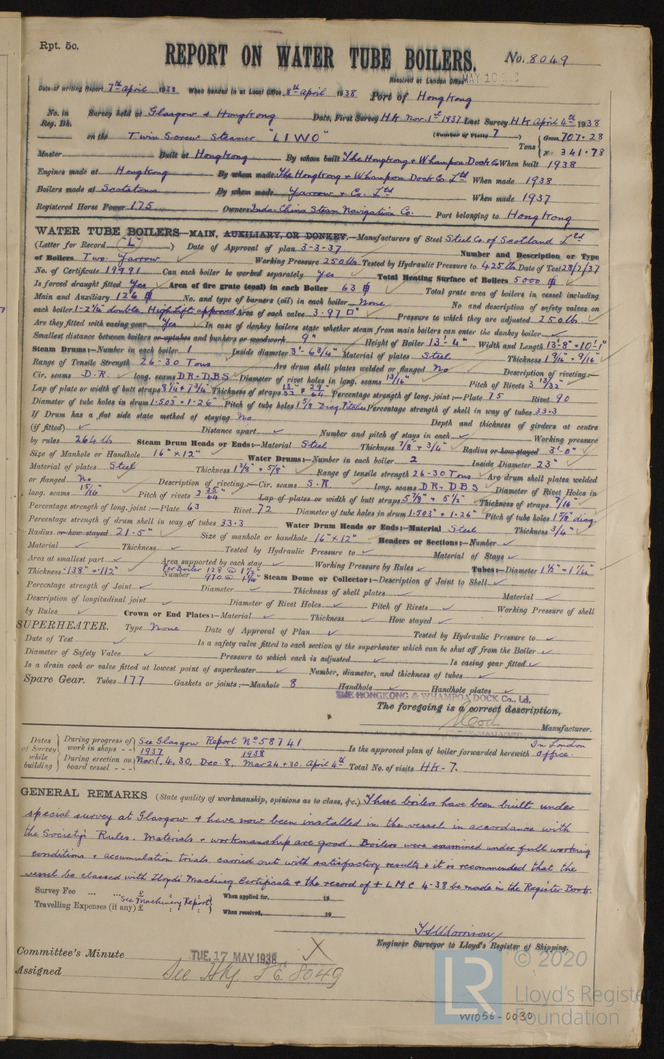 Rpt. 5c.
REPORT ON WATER TUBE BOILERS.
No. 8049
Received at London Office MAY 10
Date of writing Report 7th April 1938 When handed in at Local Office 8th April 1938 Port of Hongkong
No. in Survey held at Glasgow & Hongkong Date, First Survey HK Nov. 1st 1937 Last Survey HK April 4th 1938
Reg. Bk. (Number of Visits 7)
on the Twin Screw Steamer "LIWO" Tons Gross 707.28 Net 341.78
Master Built at Hongkong By whom built The Hongkong & Whampoa Dock Co When built 1938
Engines made at Hongkong By whom made The Hongkong & Whampoa Dock Co Ltd When made 1938
Boilers made at Scotstoun By whom made Yarrow & Co. Ltd When made 1937
Registered Horse Power 175 Owners Indo-China Steam Navigation Co. Port belonging to Hong Kong
WATER TUBE BOILERS—MAIN, AUXILIARY, OR DONKEY.—Manufacturers of Steel Steel Co. of Scotland Ltd
(Letter for Record (L)) Date of Approval of plan 3-3-37 Number and Description or Type
of Boilers Two Yarrow Working Pressure 250 lbs. Tested by Hydraulic Pressure to 425 lb. Date of Test 28/7/37
No. of Certificate 19991 Can each boiler be worked separately Yes Total Heating Surface of Boilers 5000
Is forced draught fitted Yes Area of fire grate (coal) in each Boiler 63 Total grate area of boilers in vessel including
Main and Auxiliary 126 No. and type of burners (oil) in each boiler None No. and description of safety valves on
each boiler 1-2½" double High lift approved Area of each valve 3.97 □" Pressure to which they are adjusted 250 lb
Are they fitted with easing gear Yes In case of donkey boilers state whether steam from main boilers can enter the donkey boiler
Smallest distance between boilers or uptakes and bunkers or woodwork 9" Height of Boiler 13'-4" Width and Length 13'-8" × 10'-1"
Steam Drums:—Number in each boiler 1 Inside diameter 3'-6¾" Material of plates Steel Thickness 1 9/16" - 9/16"
Range of Tensile Strength 26-30 Tons Are drum shell plates welded or flanged No Description of riveting:—
Cir. seams D.R. long. seams DR-DBS Diameter of rivet holes in long. seams 13/16" Pitch of Rivets 3 13/32"
Lap of plate or width of butt straps Thickness of straps Percentage strength of long. joint:—Plate 75 Rivet 90
Diameter of tube holes in drum 1.503 + 1.26" Pitch of tube holes 1 7/8 Diag Pitches Percentage strength of shell in way of tubes 33.3
If Drum has a flat side state method of staying No Depth and thickness of girders at centre
(if fitted) Distance apart Number and pitch of stays in each Working pressure
by rules 264 lb Steam Drum Heads or Ends:—Material Steel Thickness 7/8 + ¾" Radius or how stayed 3'-0"
Size of Manhole or Handhole 16" × 12" Water Drums:—Number in each boiler 2 Inside Diameter 23"
Material of plates Steel Thickness 1 3/8" + 5/8" Range of tensile strength 26-30 Tons Are drum shell plates welded
or flanged No Description of riveting:—Cir. seams S.R. long. seams DR. DBS Diameter of Rivet Holes in
long. seams 15/16" Pitch of rivets 3 25/64" Lap of plates or width of butt straps 5 7/8" + 5½" Thickness of straps 9/16"
Percentage strength of long. joint:—Plate 63 Rivet 72 Diameter of tube holes in drum 1.503" + 1.26" Pitch of tube holes 1 7/8" diag.
Percentage strength of drum shell in way of tubes 33.3 Water Drum Heads or Ends:—Material Steel Thickness ¾"
Radius or how stayed 21.5" Size of manhole or handhole 16" × 12" Headers or Sections:—Number
Material Thickness Tested by Hydraulic Pressure to Material of Stays
Area at smallest part Area supported by each stay Working Pressure by Rules Tubes:—Diameter 1½" - 1¼"
Thickness .138" - .112" Number Per Boiler 128 @ 1½" 970 @ 1¼" Steam Dome or Collector:—Description of Joint to Shell
Percentage strength of Joint Diameter Thickness of shell plates Material
Description of longitudinal joint Diameter of Rivet Holes Pitch of Rivets Working Pressure of shell
by Rules Crown or End Plates:—Material Thickness How stayed
SUPERHEATER. Type None Date of Approval of Plan Tested by Hydraulic Pressure to
Date of Test Is a safety valve fitted to each section of the superheater which can be shut off from the Boiler
Diameter of Safety Valve Pressure to which each is adjusted Is easing gear fitted
Is a drain cock or valve fitted at lowest point of superheater Number, diameter, and thickness of tubes
Spare Gear. Tubes 177 Gaskets or joints:—Manhole 8 Handhole Handhole plates
THE HONGKONG & WHAMPOA DOCK Co., Ld.
The foregoing is a correct description,
Manufacturer.
Dates of Survey while building
During progress of work in shops - - See Glasgow Report No 58741
During erection on board vessel - - - 1937 Nov. 1, 4, 30, Dec. 8, 1938 Mar 24 + 30. April 4th
Is the approved plan of boiler forwarded herewith In London office
Total No. of visits HK - 7.
GENERAL REMARKS (State quality of workmanship, opinions as to class, &c.) These boilers have been built under
special survey at Glasgow & have now been installed in the vessel in accordance with
the Society's Rules. Materials & workmanship are good. Boilers were examined under full working
conditions & accumulation trials carried out with satisfactory results & it is recommended that the
vessel be classed with Lloyds Machinery Certificate & the record of + LMC 4-38 be made in the Register Book.
Survey Fee ... ... £ See Machinery Report When applied for, 19
Travelling Expenses (if any) £ When received, 19
Engineer Surveyor to Lloyd's Register of Shipping.
Committee's Minute TUE. 17 MAY 1938
Assigned See Hkg F.E. 8049
© 2020
Lloyd's Register
Foundation
LR
W1056-0030